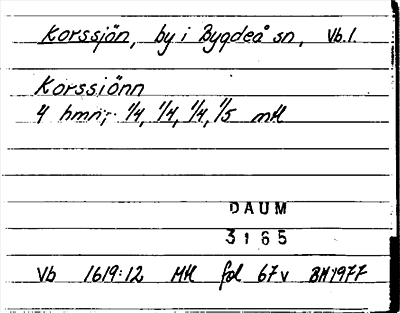 Korssjön, by i Bygdeå sn, Vb.l.
Korssiönn
4 hmn; 1/4, 1/4, 1/4, 1/5 mtl
DAUM
3165
Vb 1619:12 Mtl fol 67v BM1977